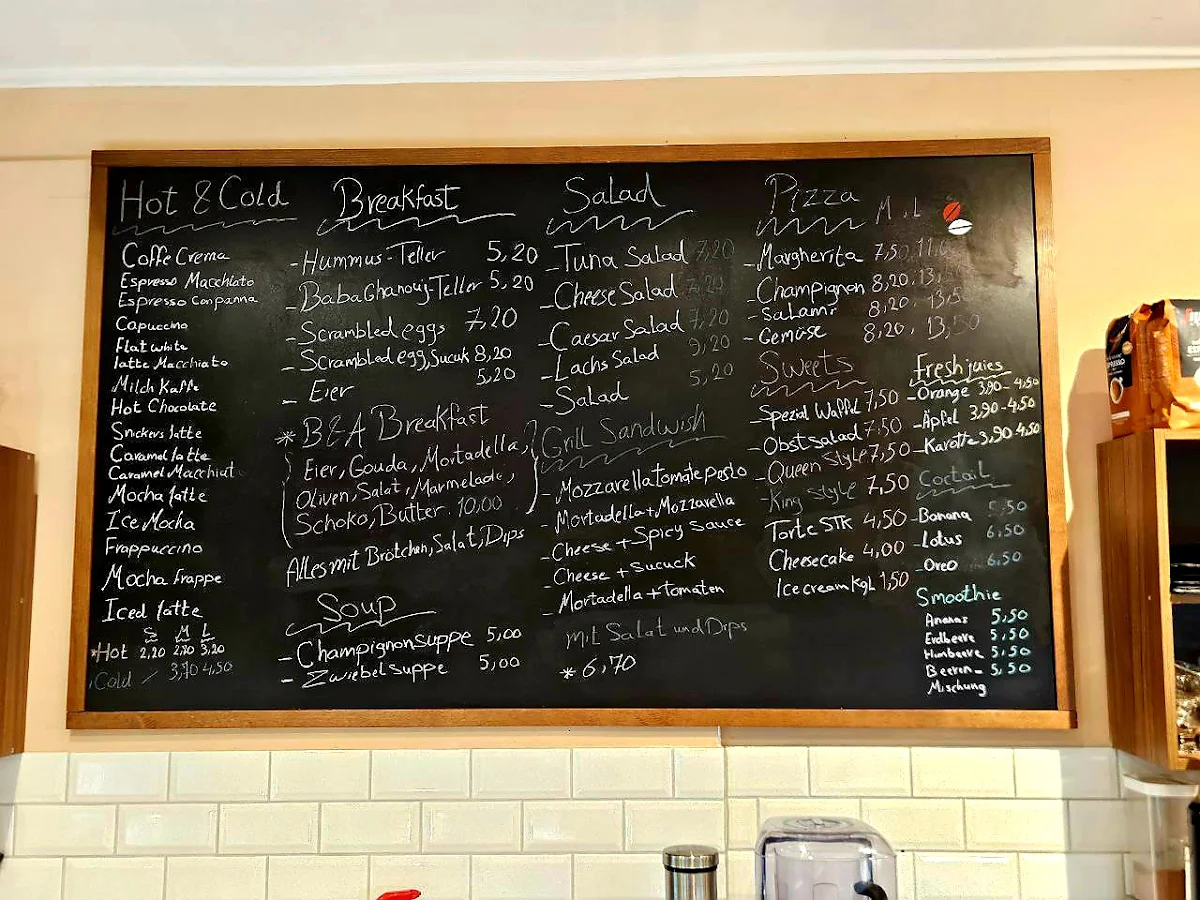 Hot & Cold
Coffe Crema
Espresso Macchiato
Espresso Conpanna
Capuccino
Flat white
latte Macchiato
Milch Kaffe
Hot Chocolate
Snickers latte
Caramel latte
Caramel Macchiat
Mocha latte
Ice Mocha
Frappuccino
Mocha frappe
Iced latte
S M L
*Hot 2,20 2,70 3,20
Cold / 3,70 4,50
Breakfast
- Hummus-Teller 5,20
- Baba Ghanouj-Teller 5,20
- Scrambled eggs 7,20
- Scrambled egg, Sucuk 8,20
- Eier 5,20
* B&A Breakfast
Eier, Gouda, Mortadella,
Oliven, Salat, Marmelade,
Schoko, Butter 10,00
Alles mit Brötchen, Salat, Dips
Soup
- Champignonsuppe 5,00
- Zwiebelsuppe 5,00
Salad
- Tuna Salad 7,20
- Cheese Salad 7,20
- Caesar Salad 7,20
- Lachs Salad 9,20
- Salad 5,20
Grill Sandwish
- Mozzarella tomate pesto
- Mortadella + Mozzarella
- Cheese + Spicy Sauce
- Cheese + sucuck
- Mortadella + Tomaten
mit Salat und Dips
* 6,70
Pizza M. L
- Margherita 7,50
- Champignon 8,20,
- Salami 8,20,
- Gemüse 8,20, 13,50
Sweets
- Spezial Waffel 7,50
- Obst salad 7,50
- Queen style 7,50
- King style 7,50
Torte STK 4,50
Cheesecake 4,00
Ice cream Kgl 1,50
Fresh juies
- Orange 3,90-4,50
- Äpfel 3,90-4,50
- Karotte 3,90-4,50
Coctail
- Banana 5,50
- Lotus 6,50
- Oreo 6,50
Smoothie
Ananas 5,50
Erdbeere 5,50
Humbeere 5,50
Beeren- 5,50
Mischung